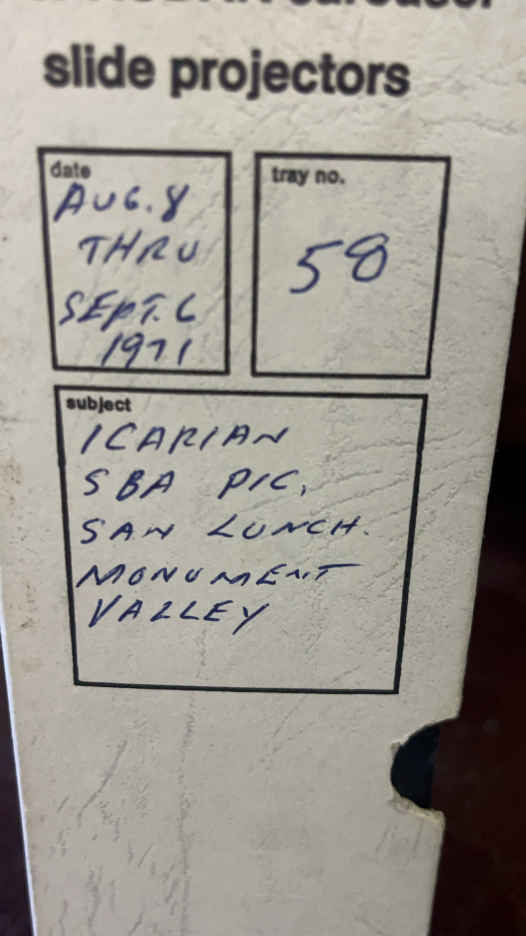 KODAK carousel
slide projectors
date
AUG. 8
THRU
SEPT. 6
1971
tray no.
58
subject
ICARIAN
SBA PIC.
SAN LUNCH.
MONUMENT
VALLEY